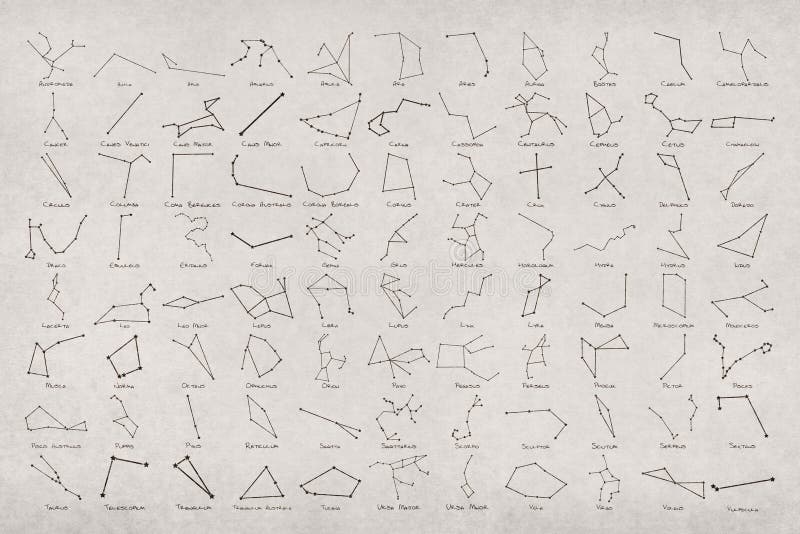 Andromeda Antlia Apus Aquarius Aquila Ara Aries Auriga Boötes Caelum Camelopardalis
Cancer Canes Venatici Canis Major Canis Minor Capricorn Carina Cassiopeia Centaurus Cepheus Cetus Chamaeleon
Circinus Columba Coma Berenices Corona Australis Corona Borealis Corvus Crater Crux Cygnus Delphinus Dorado
Draco Equuleus Eridanus Fornax Gemini Grus Hercules Horologium Hydra Hydrus Indus
Lacerta Leo Leo Minor Lepus Libra Lupus Lynx Lyra Mensa Microscopium Monoceros
Musca Norma Octans Ophiuchus Orion Pavo Pegasus Perseus Phoenix Pictor Pisces
Piscis Austrinus Puppis Pyxis Reticulum Sagitta Sagittarius Scorpio Sculptor Scutum Serpens Sextans
Taurus Telescopium Triangulum Triangulum Australe Tucana Ursa Major Ursa Minor Vela Virgo Volans Vulpecula